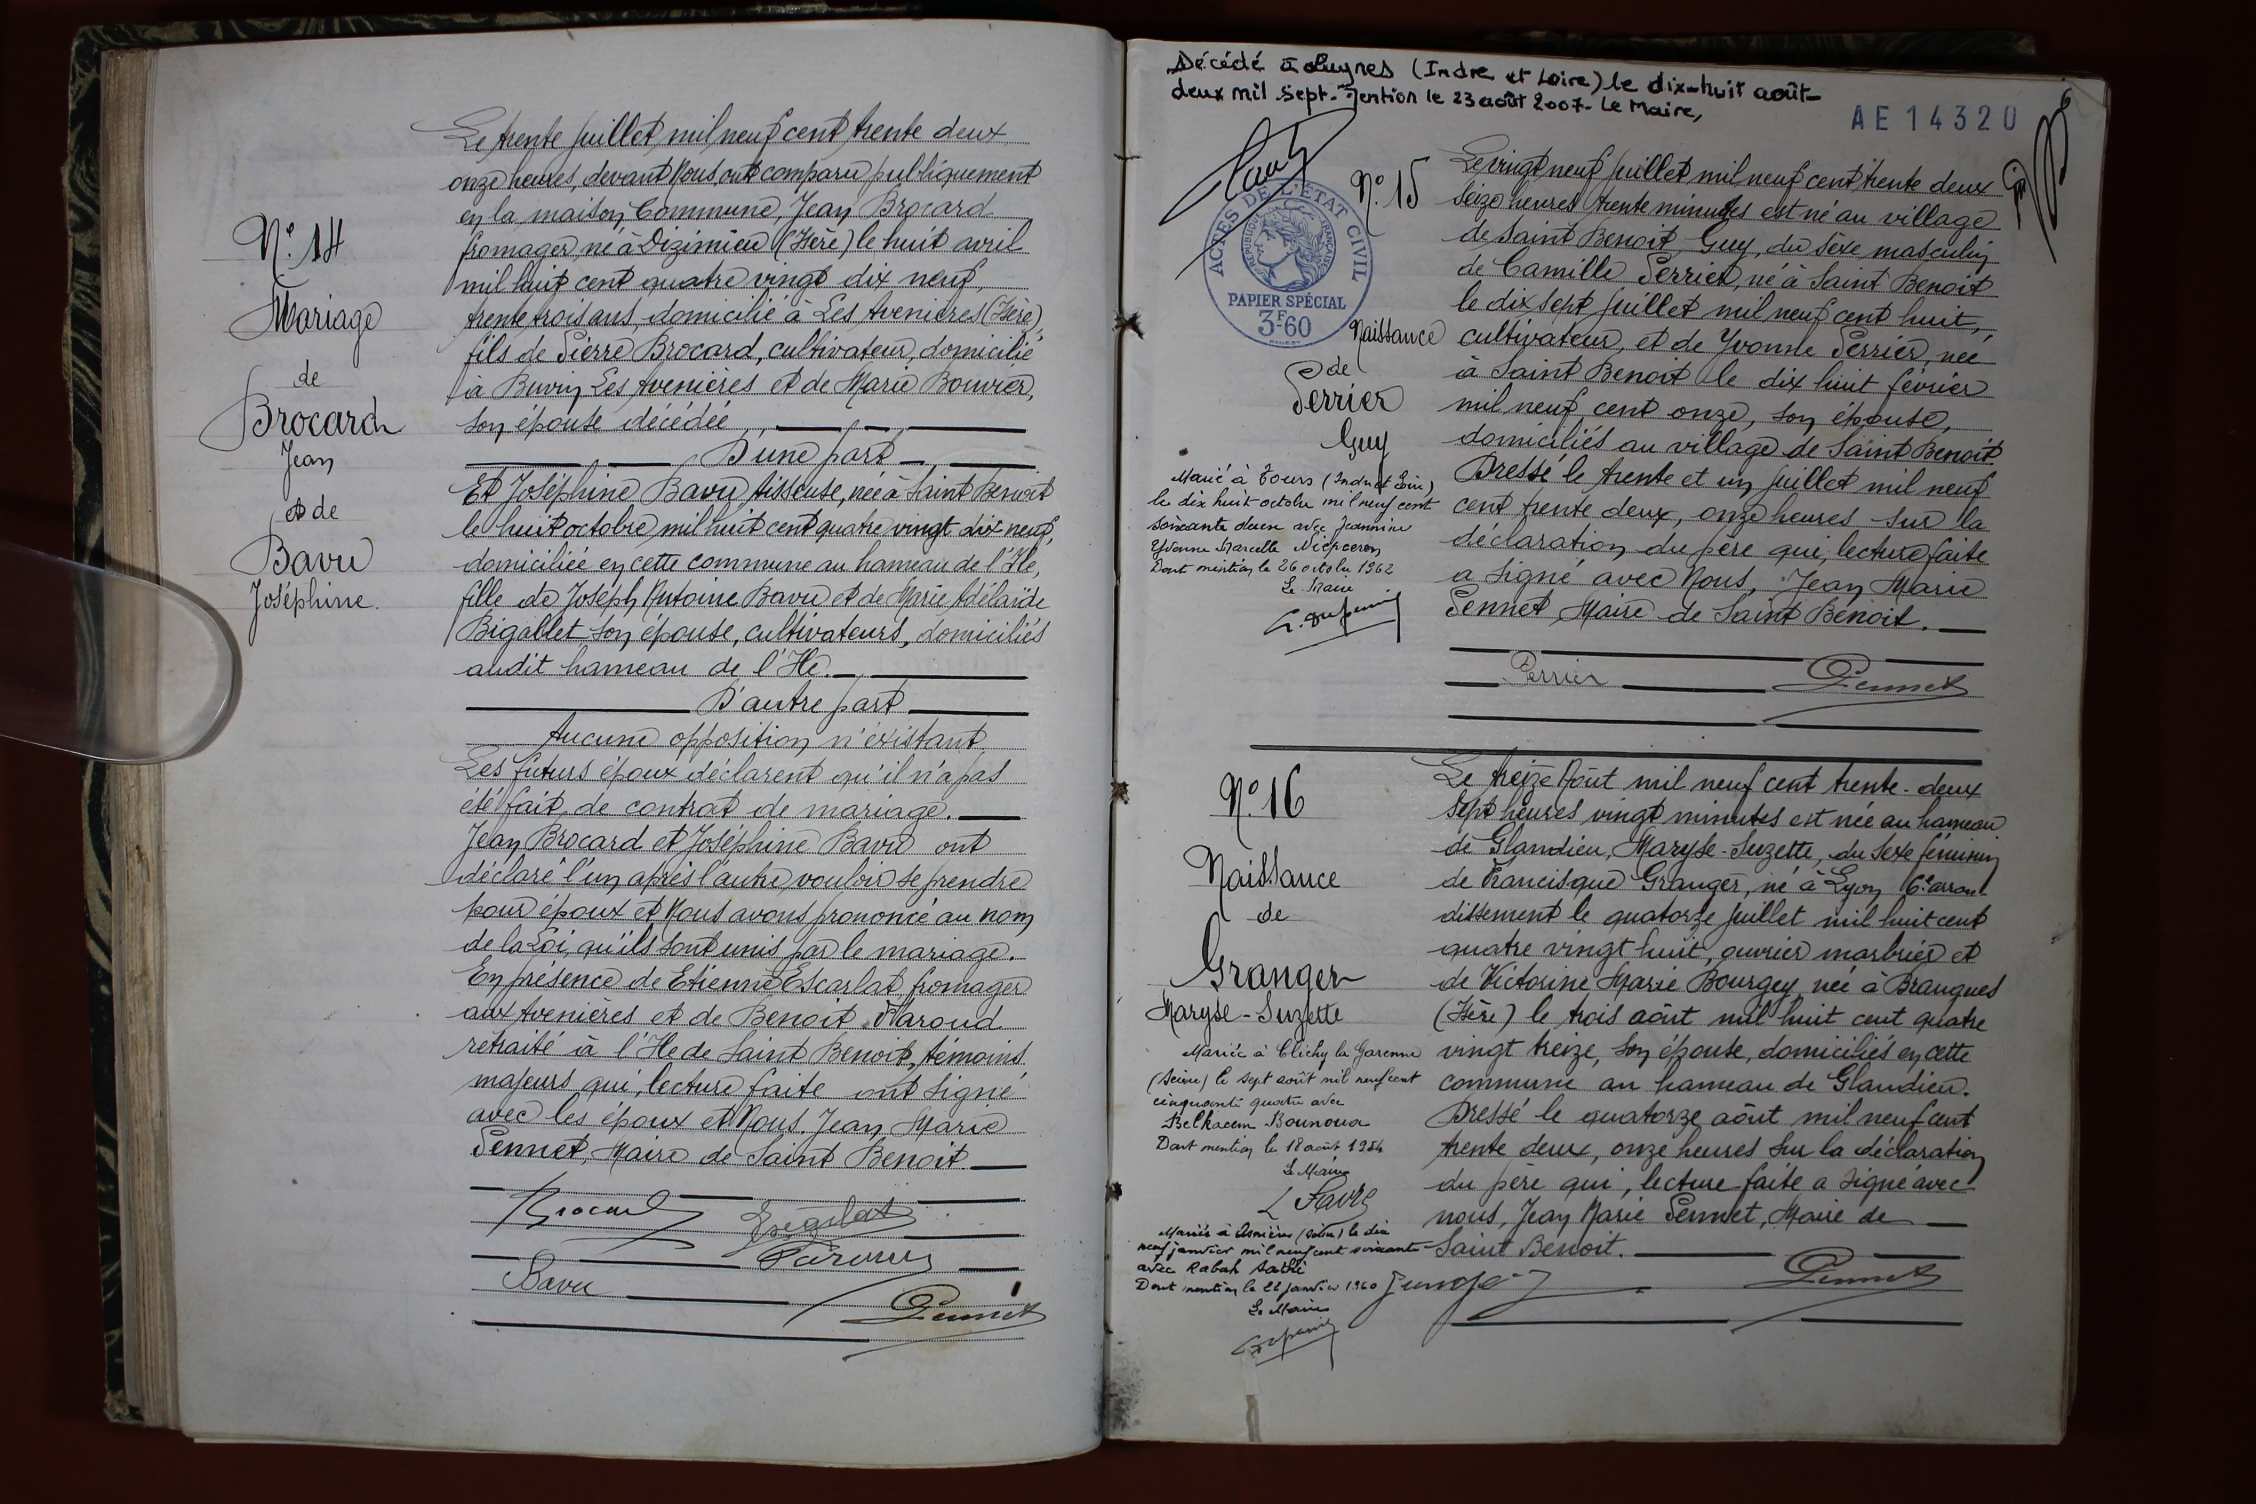 N° 14
Mariage
de
Brocard
Jean
et de
Bavu
Joséphine.
Le trente juillet mil neuf cent trente deux
onze heures, devant Nous ont comparu publiquement
en la maison Commune, Jean Brocard
fromager, né à Dizimieu (Isère) le huit avril
mil huit cent quatre vingt dix neuf,
trente trois ans, domicilié à Les Avenières (Isère),
fils de Pierre Brocard, cultivateur, domicilié
à Buvin, Les Avenières et de Marie Bouvier,
son épouse décédée
D'une part
Et Joséphine Bavu, tisseuse, née à Saint Benoit
le huit octobre mil huit cent quatre vingt dix neuf,
domiciliée en cette commune au hameau de l'Ile,
fille de Joseph Antoine Bavu et de Marie Adélaïde
Bigallet son épouse, cultivateurs, domiciliés
audit hameau de l'Ile.
D'autre part
Aucune opposition n'existant,
Les futurs époux déclarent qu'il n'a pas
été fait de contrat de mariage.
Jean Brocard et Joséphine Bavu ont
déclaré l'un après l'autre vouloir se prendre
pour époux et Nous avons prononcé au nom
de la Loi, qu'ils sont unis par le mariage.
En présence de Etienne Escarlat, fromager
aux Avenières et de Benoit Varoud
retraité à l'Ile de Saint Benoit, témoins
majeurs qui, lecture faite ont signé
avec les époux et Nous. Jean Marie
Pennet, Maire de Saint Benoit.
Brocard
Bavu
Pennet
Décédé à Luynes (Indre et Loire) le dix-huit août
deux mil sept. Mention le 23 août 2007. Le Maire,
AE 14320
ACTES DE L'ÉTAT CIVIL
RÉPUBLIQUE FRANÇAISE
PAPIER SPÉCIAL
3F60
N° 15
Naissance
de
Perrier
Guy
Marié à Tours (Indre et Loire)
le dix huit octobre mil neuf cent
soixante deux avec Jeannine
Yvonne Marcelle Niepceron
Dont mention le 26 octobre 1962
Le Maire
Le vingt neuf juillet mil neuf cent trente deux
seize heures trente minutes est né au village
de Saint Benoit, Guy, du sèxe masculin
de Camille Perrier, né à Saint Benoit
le dix sept juillet mil neuf cent huit,
cultivateur, et de Yvonne Perrier, née
à Saint Benoit le dix huit février
mil neuf cent onze, son épouse,
domiciliés au village de Saint Benoit.
Dressé le trente et un juillet mil neuf
cent trente deux, onze heures sur la
déclaration du père qui, lecture faite
a signé avec Nous, Jean Marie
Pennet, Maire de Saint Benoit.
Perrier
Pennet
N° 16
Naissance
de
Granger
Maryse-Suzette
Mariée à Clichy la Garenne
(Seine) le sept août mil neuf cent
cinquante quatre avec
Belkacem Bounoua
Dont mention le 18 août 1954
Le Maire
Favre
Mariée à Asnières (Seine) le dix
neuf janvier mil neuf cent soixante
avec Rabah
Dont mention le 22 janvier 1960
Le Maire
Le treize Août mil neuf cent trente-deux
sept heures vingt minutes est née au hameau
de Glandieu, Maryse-Suzette, du sexe féminin
de Francisque Granger, né à Lyon 6e arron-
dissement le quatorze juillet mil huit cent
quatre vingt huit, ouvrier marbrier et
de Victorine Marie Bourgey née à Brangues
(Isère) le trois août mil huit cent quatre
vingt treize, son épouse, domiciliés en cette
commune au hameau de Glandieu.
Dressé le quatorze août mil neuf cent
trente deux, onze heures sur la déclaration
du père qui, lecture faite a signé avec
nous, Jean Marie Pennet, Maire de
Saint Benoit.
Pennet